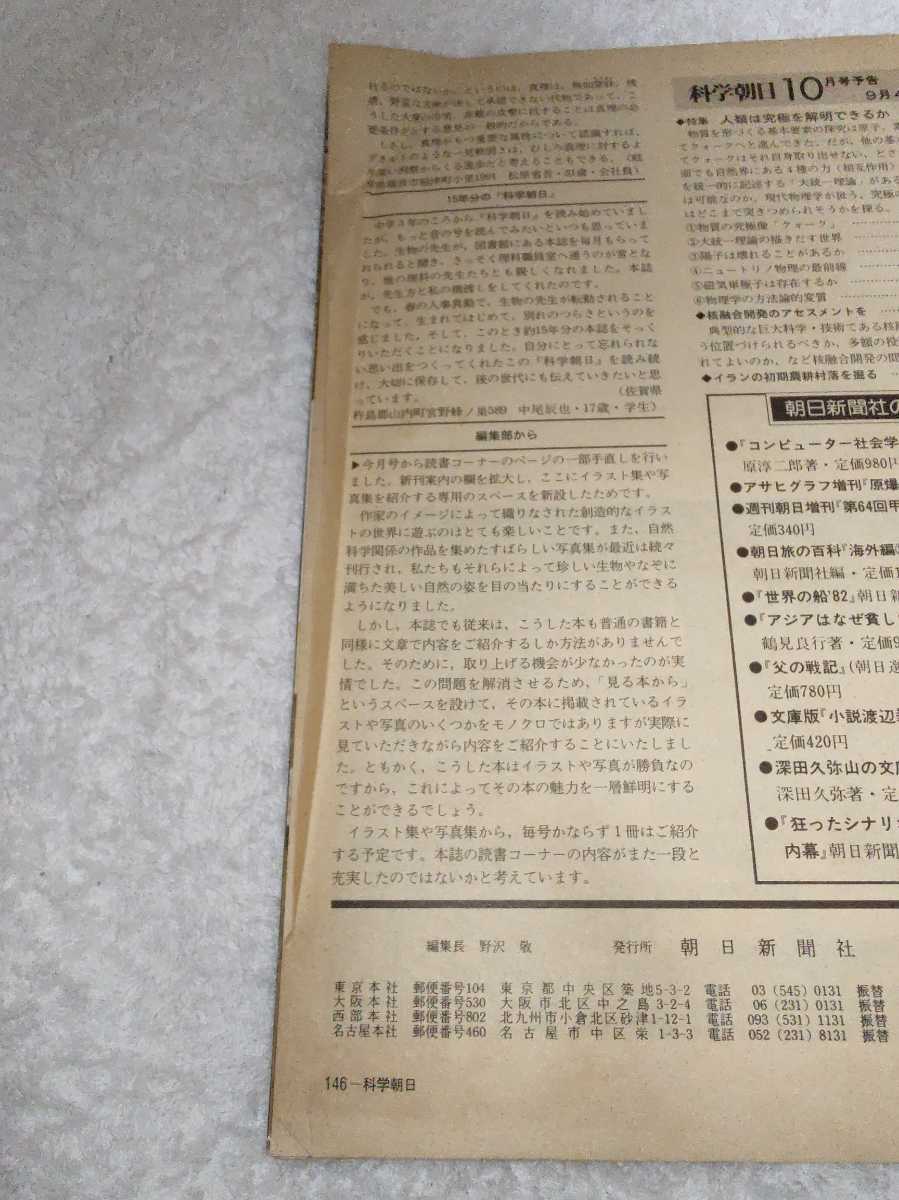 要条件とする意見が一般的だからである。
15年分の『科学朝日』
中学3年のころから『科学朝日』を読み始めていまし
たが、もっと昔の号を読んでみたいといつも思っていま
した。生物の先生が、図書館にある本誌を毎月もらって
おられると聞き、さっそく理科職員室へ通うのが常とな
り、他の理科の先生たちとも親しくなれました。本誌
が、先生方と私の橋渡しをしてくれたのです。
でも、春の人事異動で、生物の先生が転勤されること
になって、生まれてはじめて、別れのつらさというのを
感じました。そして、このとき約15年分の本誌をそっく
りいただくことになりました。自分にとって忘れられな
い思い出をつくってくれたこの『科学朝日』を読み続
け、大切に保存して、後の世代にも伝えていきたいと思
っています。（佐賀県
杵島郡山内町宮野蜂ノ巣589 中尾辰也・17歳・学生）
編集部から
▶今月号から読書コーナーのページの一部手直しを行い
ました。新刊案内の欄を拡大し、ここにイラスト集や写
真集を紹介する専用のスペースを新設したためです。
作家のイメージによって織りなされた創造的なイラス
トの世界に遊ぶのはとても楽しいことです。また、自然
科学関係の作品を集めたすばらしい写真集が最近は続々
刊行され、私たちもそれらによって珍しい生物やなぞに
満ちた美しい自然の姿を目の当たりにすることができる
ようになりました。
しかし、本誌でも従来は、こうした本も普通の書籍と
同様に文章で内容をご紹介するしか方法がありませんで
した。そのために、取り上げる機会が少なかったのが実
情でした。この問題を解消させるため、「見る本から」
というスペースを設けて、その本に掲載されているイラ
ストや写真のいくつかをモノクロではありますが実際に
見ていただきながら内容をご紹介することにいたしまし
た。ともかく、こうした本はイラストや写真が勝負なの
ですから、これによってその本の魅力を一層鮮明にする
ことができるでしょう。
イラスト集や写真集から、毎号かならず1冊はご紹介
する予定です。本誌の読書コーナーの内容がまた一段と
充実したのではないかと考えています。
科学朝日10月号予告
9月
◆特集 人類は究極を解明できるか
物質を形づくる基本要素の探究は原子、
てクォークへと進んできた。だが、他の基
てクォークはそれ自身取り出せない。とさ
面でも自然界にある4種の力（相互作用）
を統一的に記述する「大統一理論」がある
は可能なのか。現代物理学が扱う、究極の
はどこまで突きつめられそうかを探る。
①物質の究極像「クォーク」
②大統一理論の描きだす世界
③陽子は壊れることがあるか
④ニュートリノ物理の最前線
⑤磁気単極子は存在するか
⑥物理学の方法論的変質
◆核融合開発のアセスメントを
典型的な巨大科学・技術である核
う位置づけられるべきか、多額の投
れてよいのか、など核融合開発の問
◆イランの初期農耕村落を掘る
朝日新聞社の
●『コンピューター社会学
原淳二郎著・定価980円
●アサヒグラフ増刊『原爆
●週刊朝日増刊『第64回甲
定価340円
●朝日旅の百科『海外編
朝日新聞社編・定価
●『世界の船'82』朝日新
●『アジアはなぜ貧し
鶴見良行著・定価9
●『父の戦記』(朝日選
定価780円
●文庫版『小説渡辺
定価420円
●深田久弥山の文庫
深田久弥著・定
●『狂ったシナリ
内幕』朝日新聞
編集長 野沢 敬 発行所 朝日新聞社
東京本社 郵便番号104 東京都中央区築地5-3-2 電話 03（545）0131 振替
大阪本社 郵便番号530 大阪市北区中之島3-2-4 電話 06（231）0131 振替
西部本社 郵便番号802 北九州市小倉北区砂津1-12-1 電話 093（531）1131 振替
名古屋本社 郵便番号460 名古屋市中区栄1-3-3 電話 052（231）8131 振替
146－科学朝日